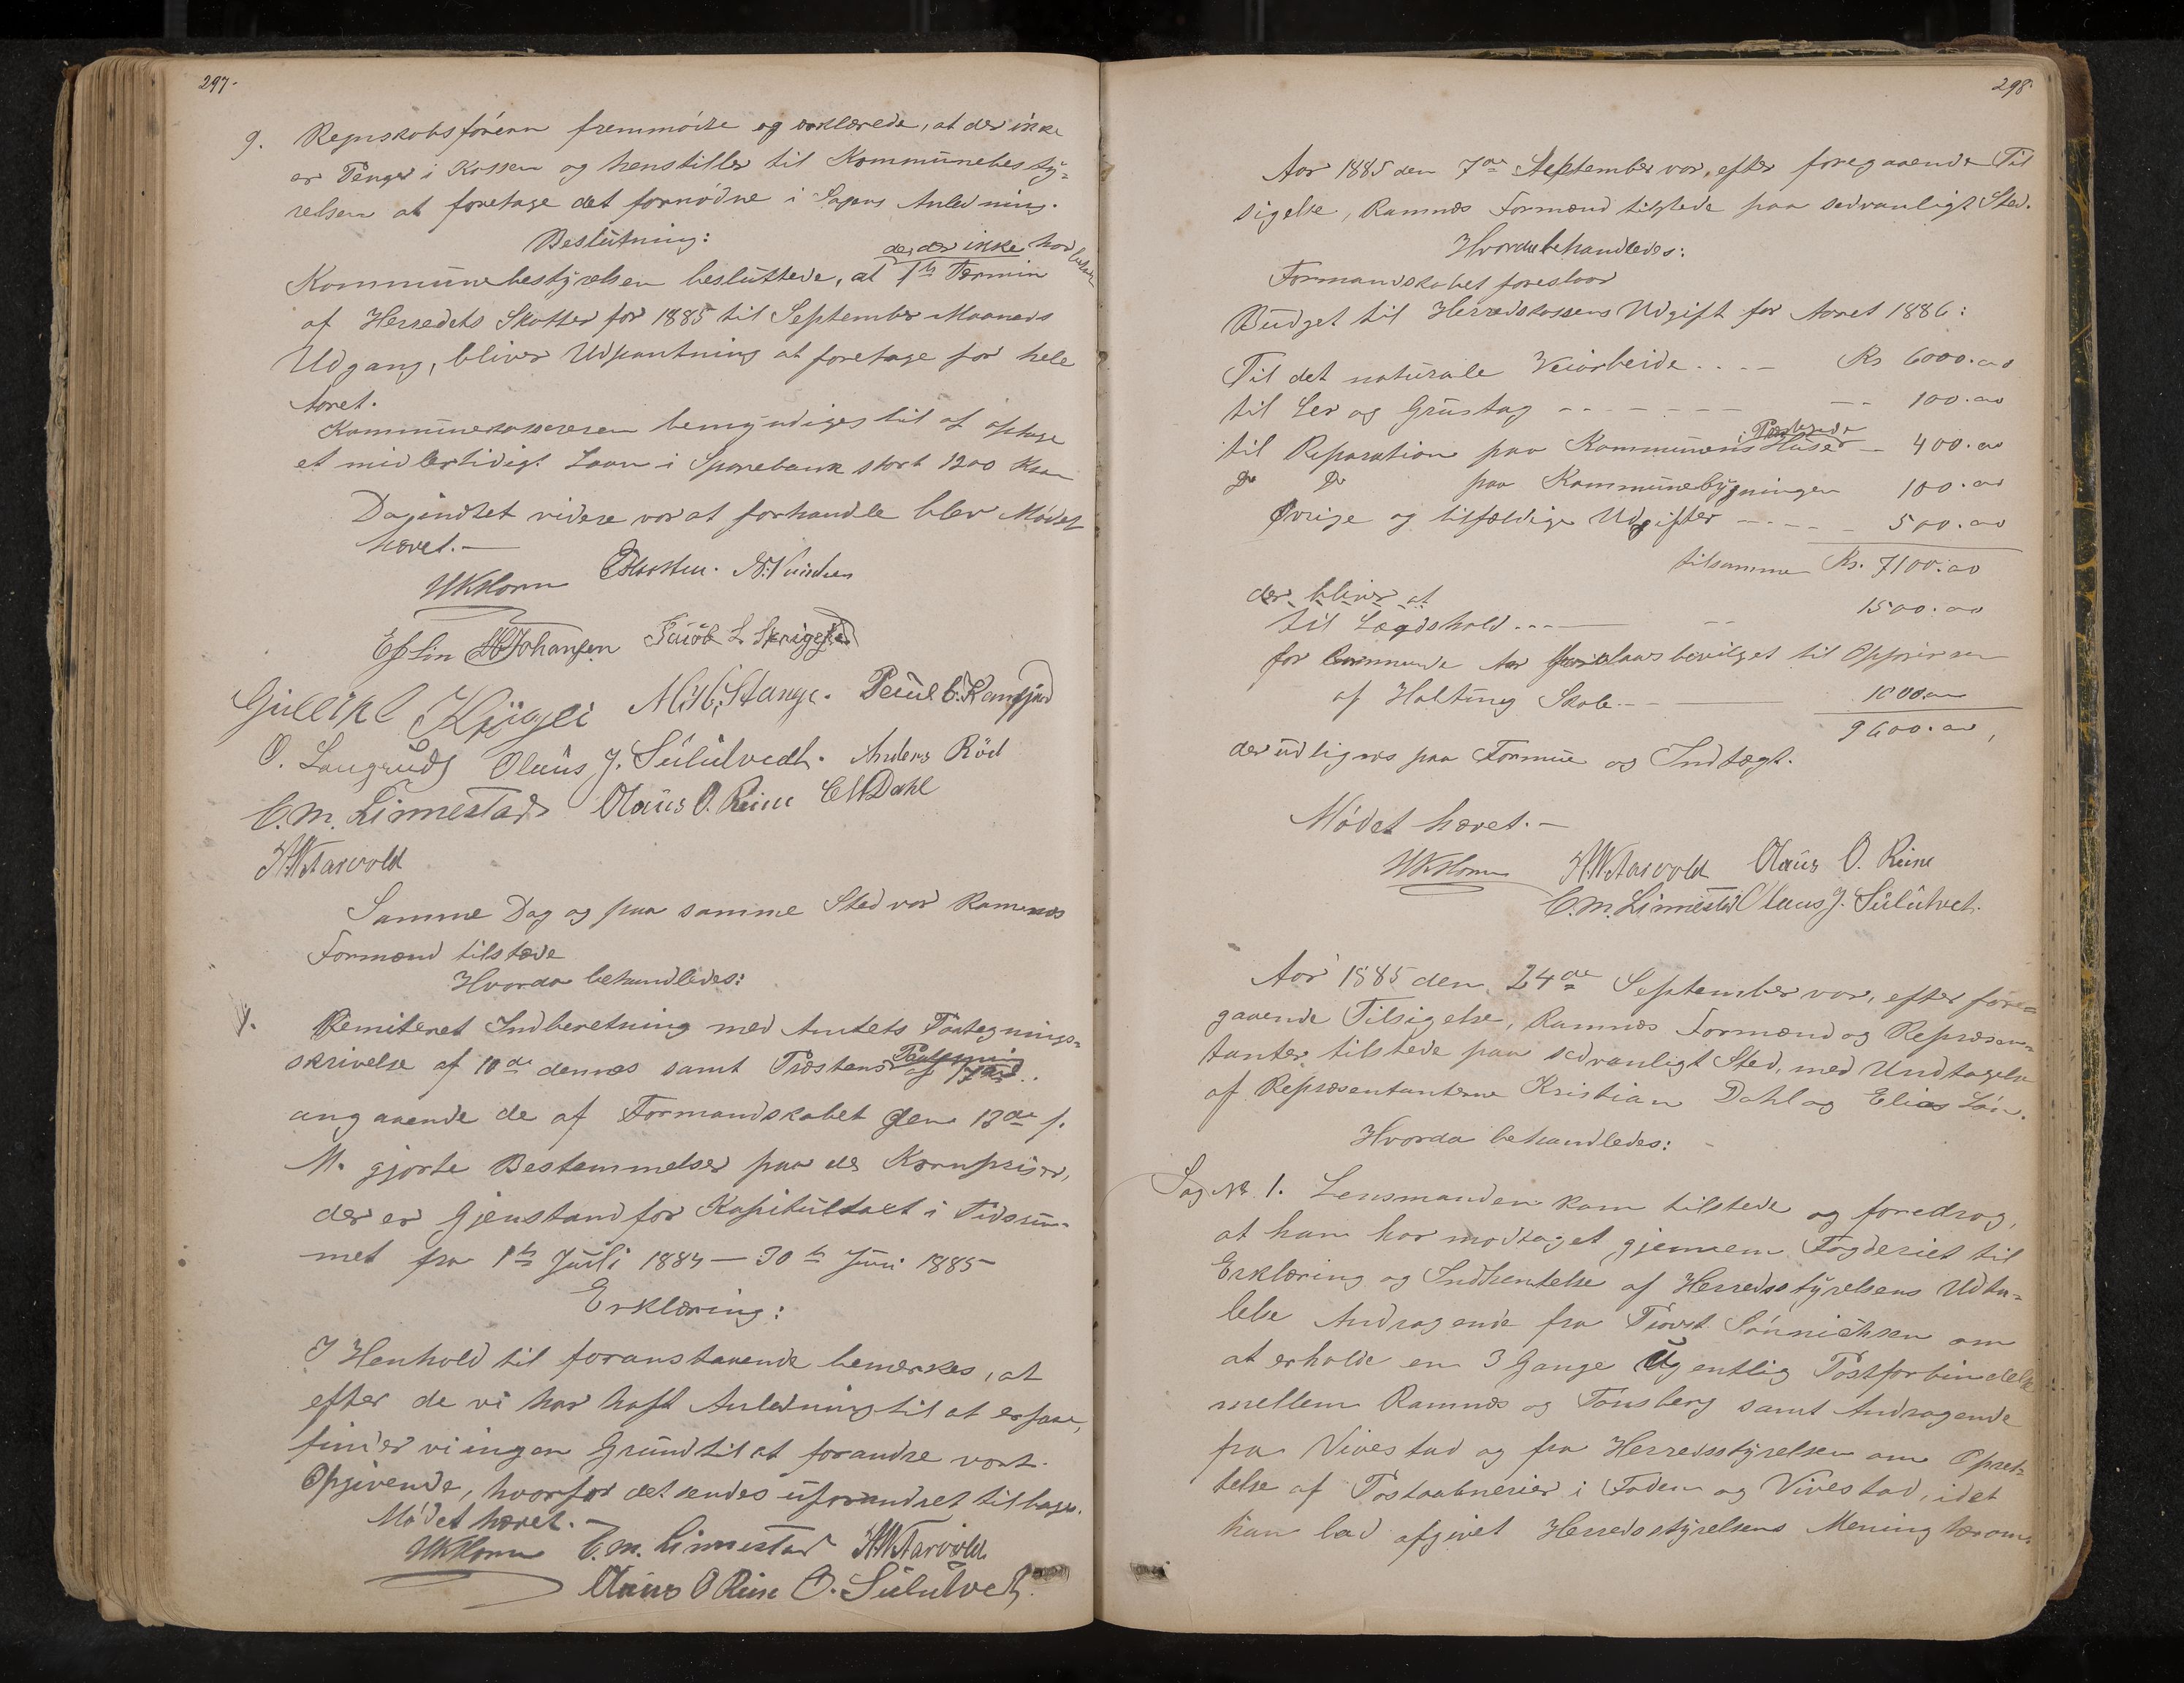 297.
9. Regnskabsføreren fremmødte og erklærede, at der ikke
er Penge i Kassen og henstiller til Kommunebesty=
relsen at foretage det fornødne i Sagens Anledning.
Beslutning:
der, der ikke har betalt
Kommunebestyrelsen besluttede, at 1ste Termin
af Herredets Skatter for 1885 til September Maaneds
Udgang, bliver Udpantning at foretage for hele
Aaret.
Kommunekassereren bemyndiges til at optage
et midlertidigt Laan i Sparebank stort 1200 Kroner
Da Intet videre var at forhandle blev Mødet
hævet.—
Eflin H Johansen Jacob L
Gullik Kjøgli M. H. Stange. Poul C. Ramsfjord
O. Langrud Olaus J. Sululvedt. Anders Röd
C. M. Linnestad Olaus O. Reine C M Dahl
H. N. Farvold
Samme Dag og paa samme Sted var Ramnæs
Formænd tilstæde
Hvorda behandledes:
1. Remiteret Indberetning med Amtets Paategnings=
skrivelse af 10de dennes samt Præstens Paategning af 17de
angaaende de af Formandskabet den 13de f.
M. gjorte Bestemmelser paa de Kornpriser,
der er Gjenstand for Kapitultaxt i Tidsrum-
met fra 1ste Juli 1884 — 30te Juni 1885
Erklæring:
I Henhold til foranstaaende bemærkes, at
efter de vi har haft Anledning til at erfare,
finder vi ingen Grund til at forandre vort
Opgivende, hvorfor det sendes uforandret tilbage.
Mødet hævet.—
C. M. Linnestad H. N. Farvold
Olaus O Reine O. Sululvedt
298.
Aar 1885 den 7de September var, efter foregaaende Til
sigelse, Ramnæs Formænd tilstede paa sedvanligt Sted.
Hvorda behandledes:
Formandskabet foreslaar
Budget til Herredskassens Udgift for Aaret 1886:
Til det naturale Veiarbeide.... Kr 6000.00
til Ler og Grustag - - - - - - 100.00
til Reparation paa Kommunens Huse — 400.00
Do Do paa Kommunebygningen 100.00
Øvrige og tilfældige Udgifter — - - - 500.00
tilsamme Kr. 7100.00
der bliver at
til Lægdshold.... 1500.00
for kommende Aar bevilget til Opførsen
af Haltung Skole - - 1000.00
9600.00,
der udlignes paa Formue og Indtægt.
Mødet hævet.—
H. N. Farvold Olaus O. Reine
C. M. Linnestad Olaus J. Sululvet.
Aar 1885 den 24de September var, efter fore=
gaaende Tilsigelse, Ramnæs Formænd og Repræsen=
tanter tilstede paa sedvanligt Sted, med Undtagelse
af Repræsentanterne Kristian Dahl og Elias Lön.
Hvorda behandledes:
Sag No 1. Lensmanden kom tilstede og foredrog,
at han har modtaget gjennem Fogderiet til
Erklæring og Indhentelse af Herredsstyrelsens Udta=
lelse Andragende fra Provst Sönnichsen om
at erholde en 3 Gange Ugentlig Postforbindelse
mellem Ramnæs og Tönsberg samt Andragende
fra Vivestad og fra Herredsstyrelsen om Opret=
telse af Postaabnerier i Foden og Vivestad, idet
han bad afgivet Herredsstyrelsens Mening herom.